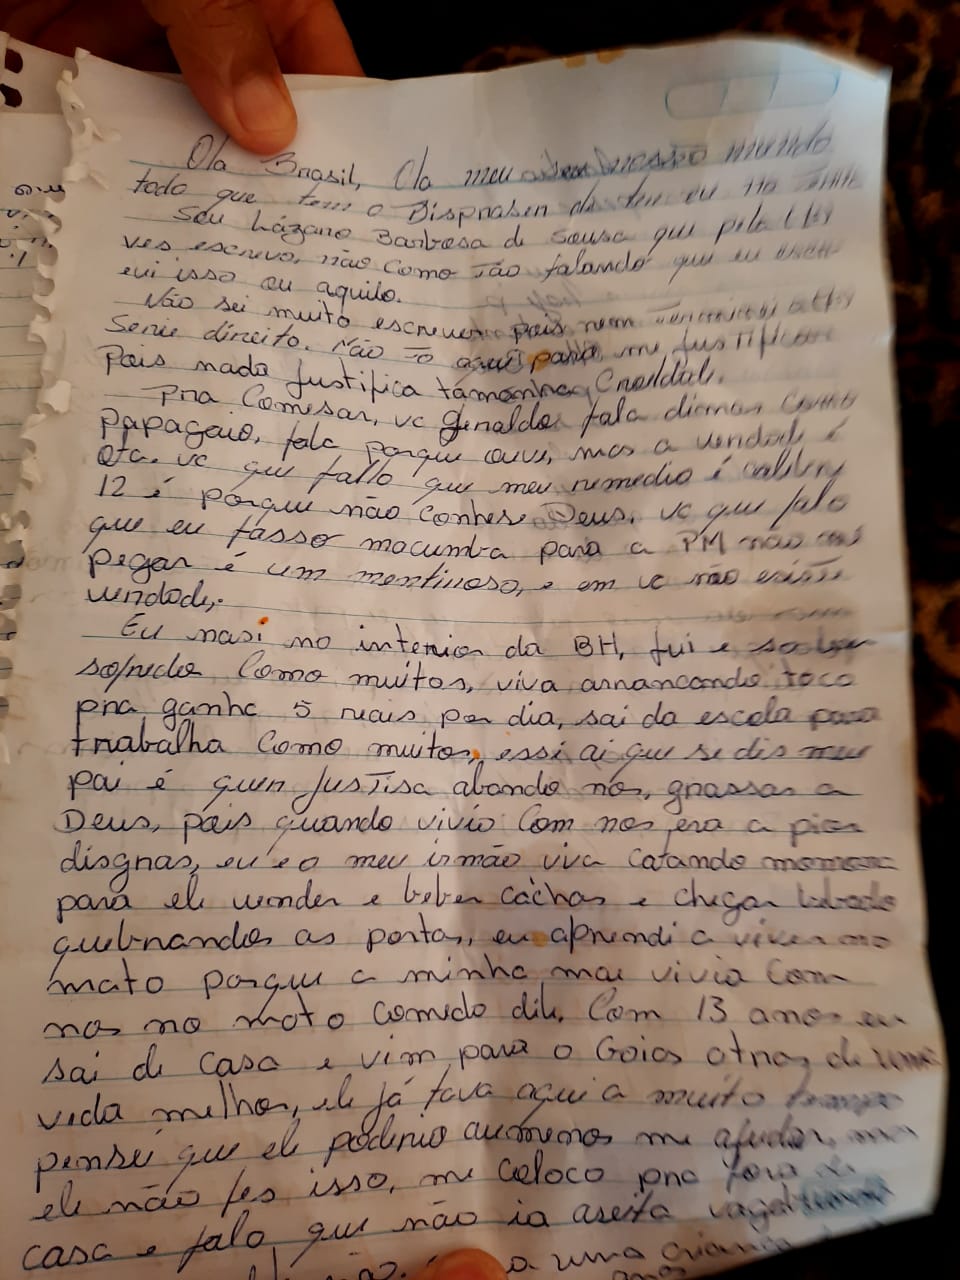 Ola Brasil, Ola meu mundo
todo que tem o Disprasen de eu no
Sou Lázaro Barbosa de Sousa que pela
ves escrevo, não como tão falando que eu
evi isso ou aquilo.
Não sei muito escrever pois nem terminei a
Serie direito. Não to aqui para me justificar
Pois nada justifica tamanha Crueldade.
Pra Comesar, vc Genaldo fala dimas como
papagaio, fala porque ouvi, mas a verdade é
Ota. vc que fallo que meu remedio é calibre
12 é porque não conhese Deus. vc que falo
que eu fasso macumba para a PM não me
pegar é um mentiroso, e em vc não existe
verdade.
Eu nasi no interior da BH, fui e
sofredo Como muitos, viva arrancando toco
pra ganha 5 reais por dia, sai da escola para
trabalha Como muitos, essi ai que si dis meu
pai é quen Justisa abando nos, grassas a
Deus, pois quando vivio Com nos era a pior
disgras, eu e o meu irmão viva catando mamona
para ele vender e beber cachas e chegar bebado
quebrandos as portas, eu aprendi a viver no
mato porque a minha mae vivia Com
nos no mato comedo dile. Com 13 anos eu
sai de casa e vim para o Goias atras de uma
vida melhor, ele já tava aqui a muito tempo
pensei que ele poderio aumenos me ajudar, mas
ele não fes isso, me coloco pra fora de
casa e falo que não ia aseita vagabundo
não. a uma criança
anos